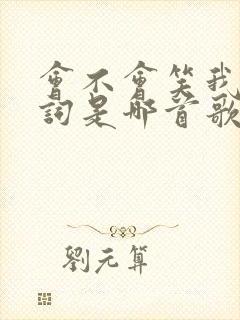 會不會笑我
詞是哪首歌
劉元算